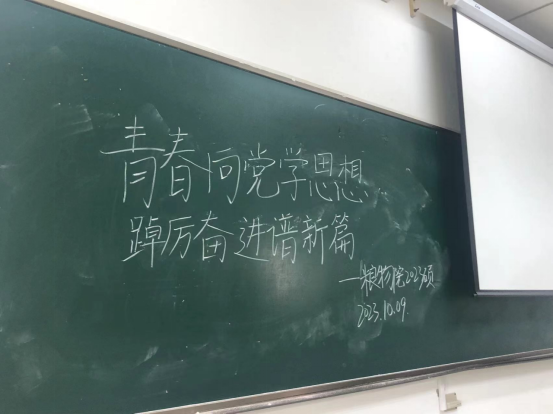 青春向党学思想
踔厉奋进谱新篇
—粮物院2023硕
2023.10.09